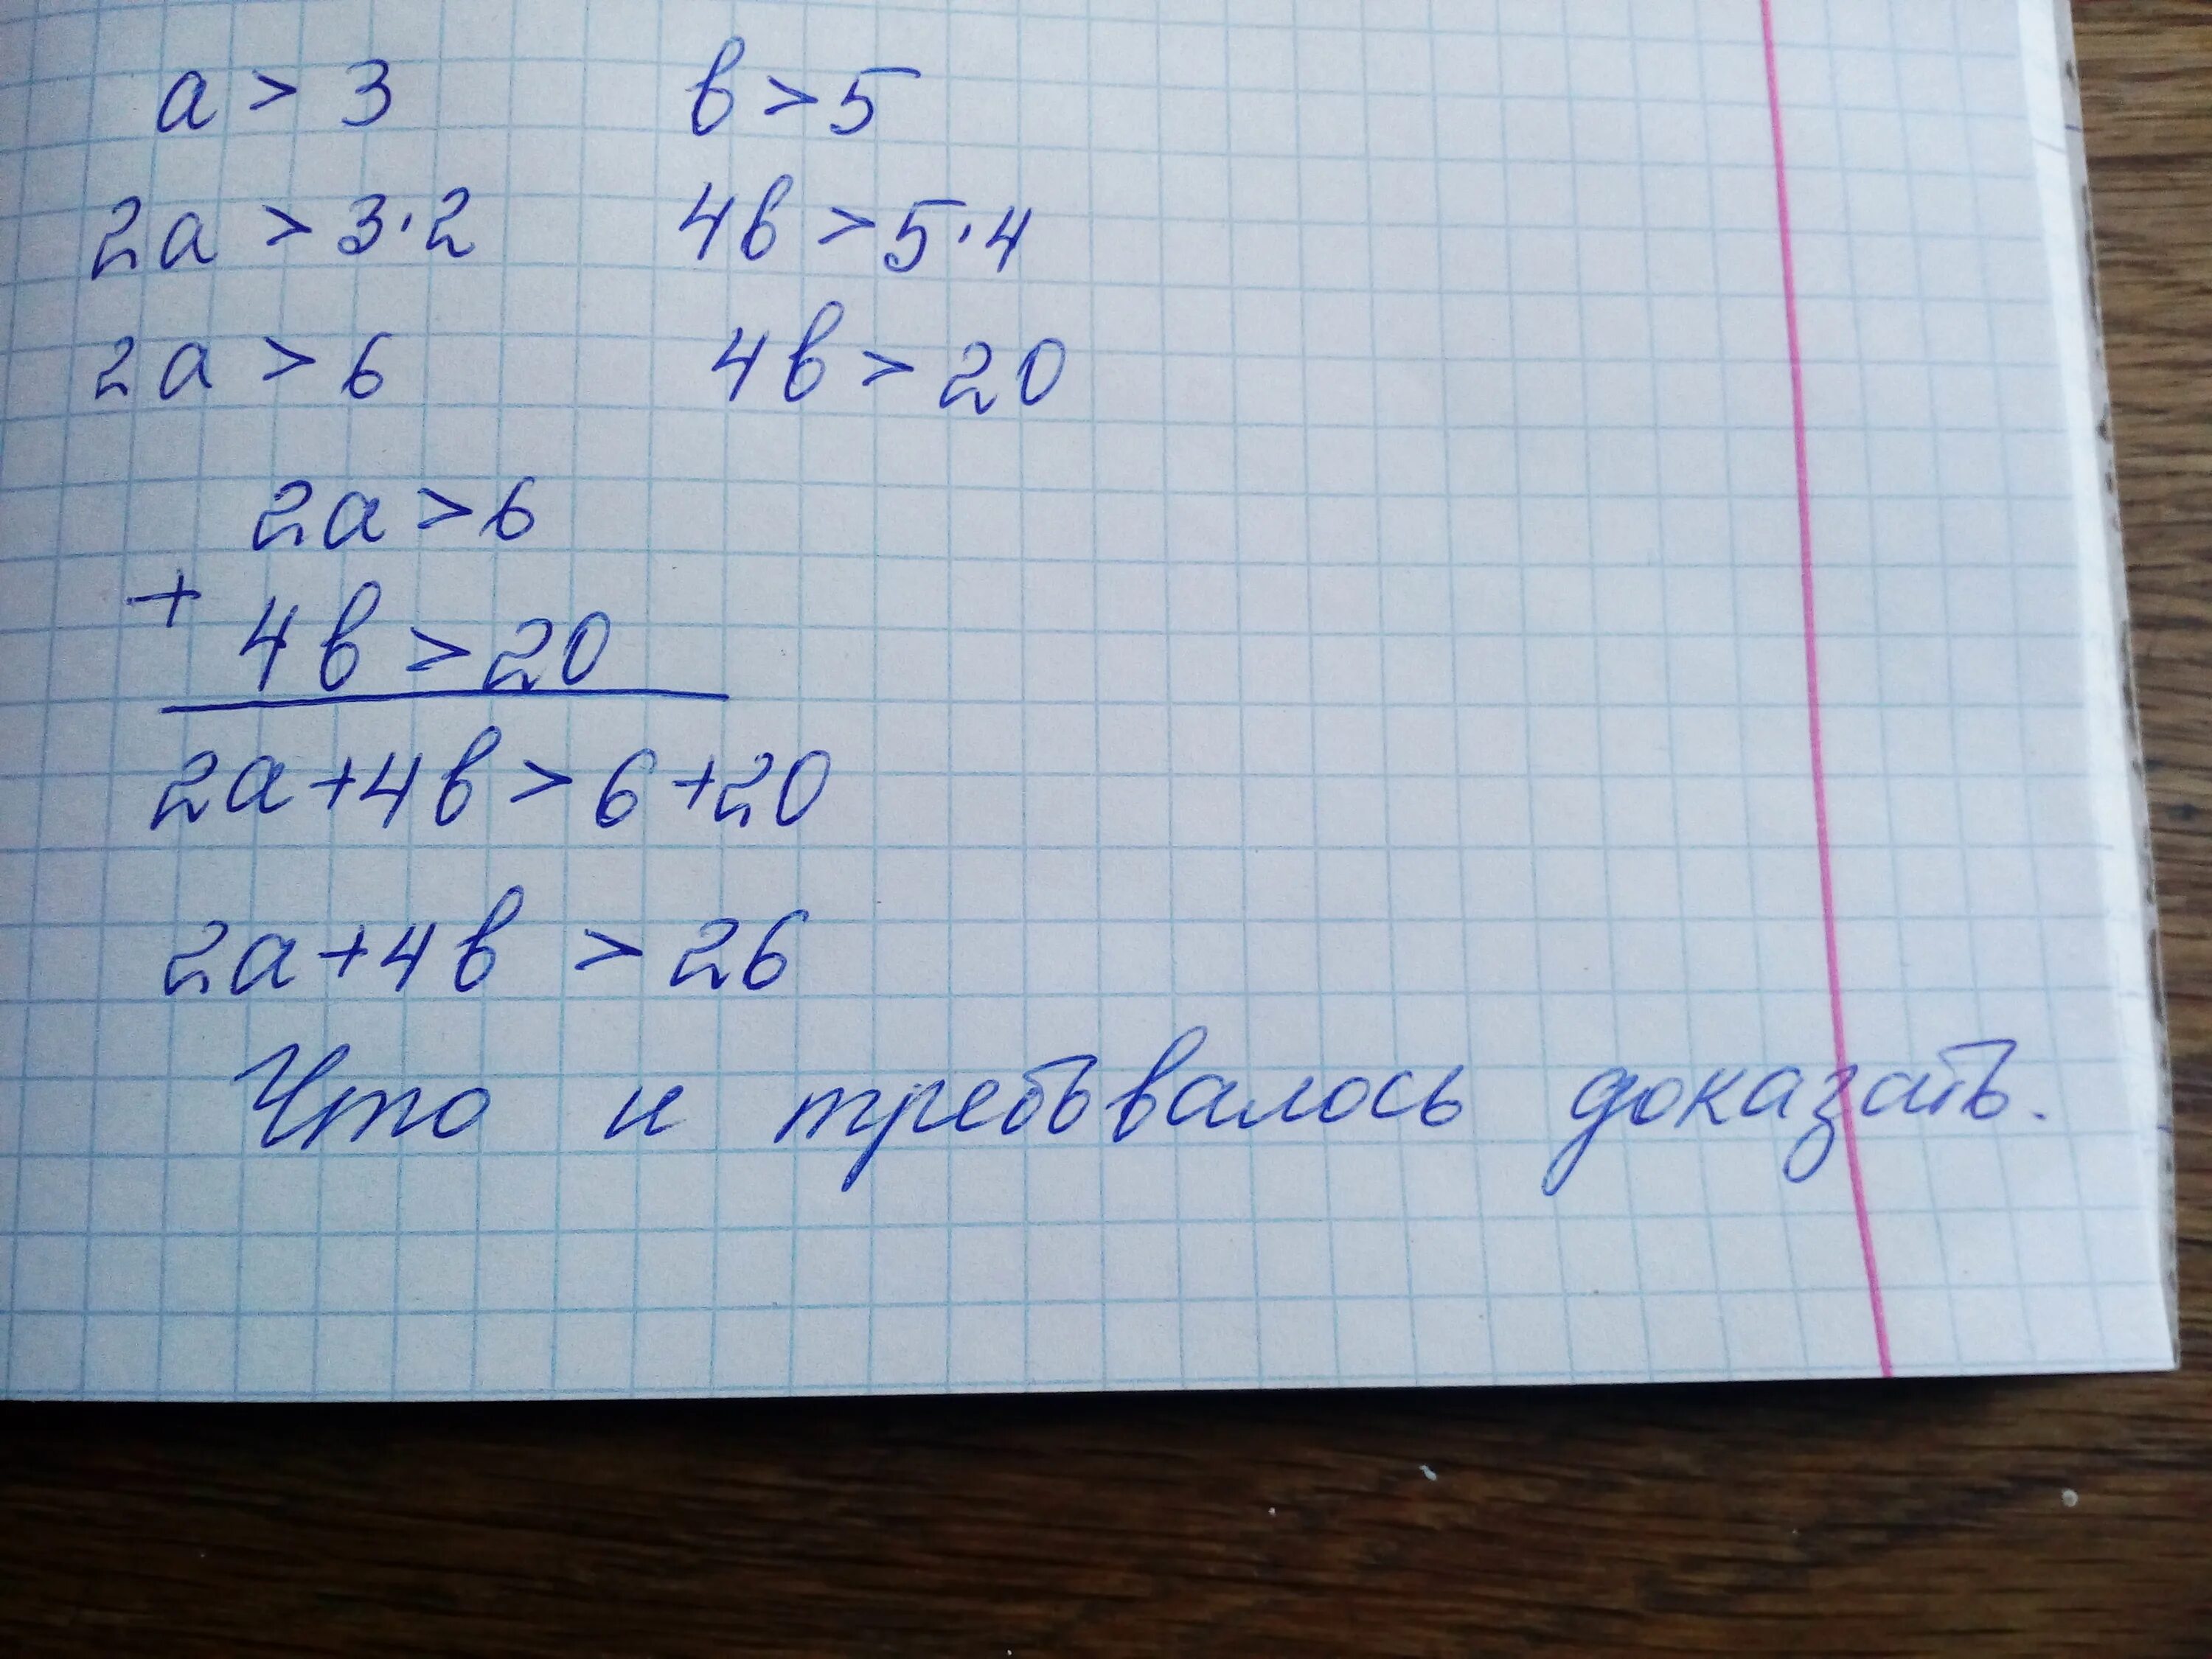 a > 3 в > 5
2a > 3·2 4в > 5·4
2a > 6 4в > 20
2a > 6
+
4в > 20
2a+4в > 6+20
2a+4в > 26
Что и требывалось доказать.